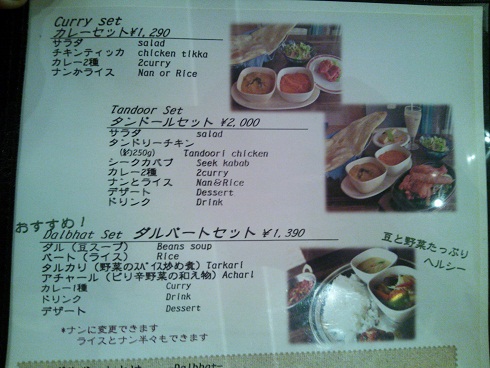 Curry set
カレーセット¥1,290
サラダ salad
チキンティッカ chicken tikka
カレー2種 2curry
ナンかライス Nan or Rice
Tandoor Set
タンドールセット ¥2,000
サラダ salad
タンドリーチキン
(約250g) Tandoori chicken
シークカバブ Seek kabab
カレー2種 2curry
ナンとライス Nan&Rice
デザート Dessert
ドリンク Drink
おすすめ!
Dalbhat Set ダルバートセット ¥1,390
ダル(豆スープ) Beans soup
バート(ライス) Rice
タルカリ(野菜のスパイス炒め煮) Tarkari
アチャール(ピリ辛野菜の和え物) Achari
カレー1種 Curry
ドリンク Drink
デザート Dessert
豆と野菜たっぷり
ヘルシー
*ナンに変更できます
ライスとナン半々もできます
-Dalbhat-